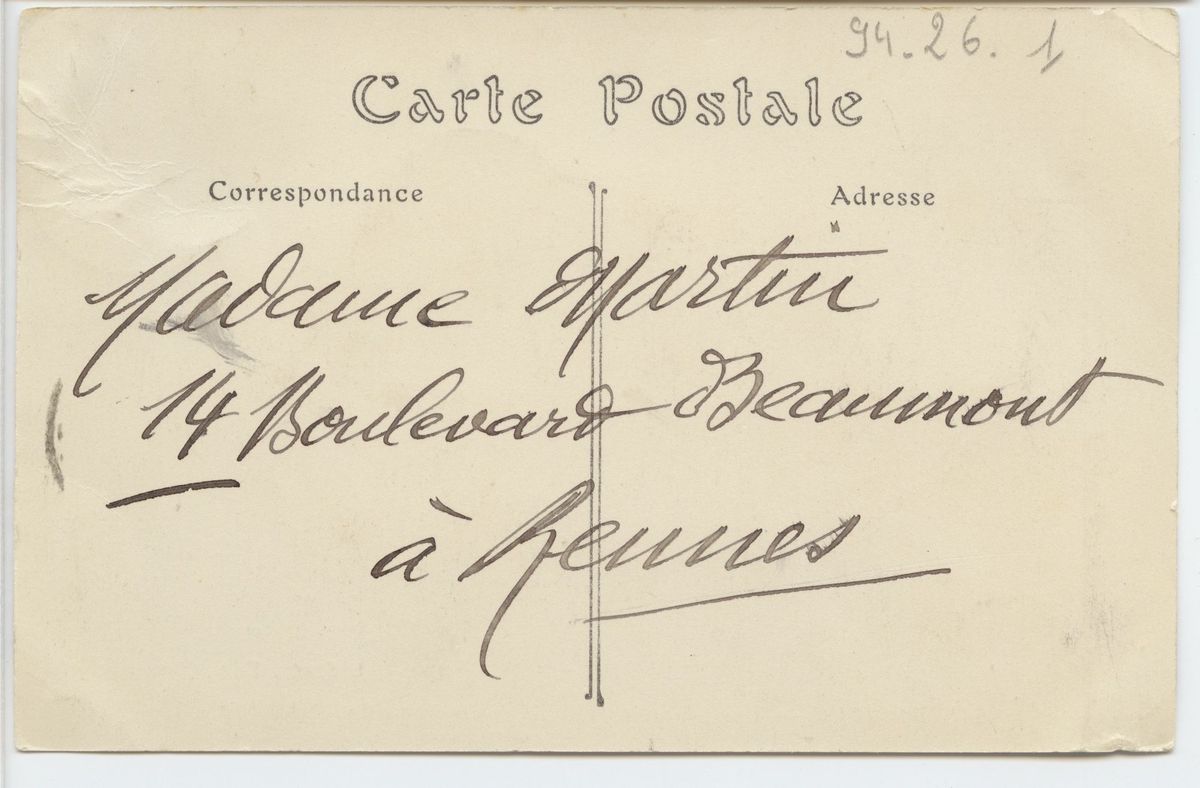 94.26.1
Carte Postale
Correspondance
Adresse
Madame Martin
14 Boulevard Beaumont
à Rennes